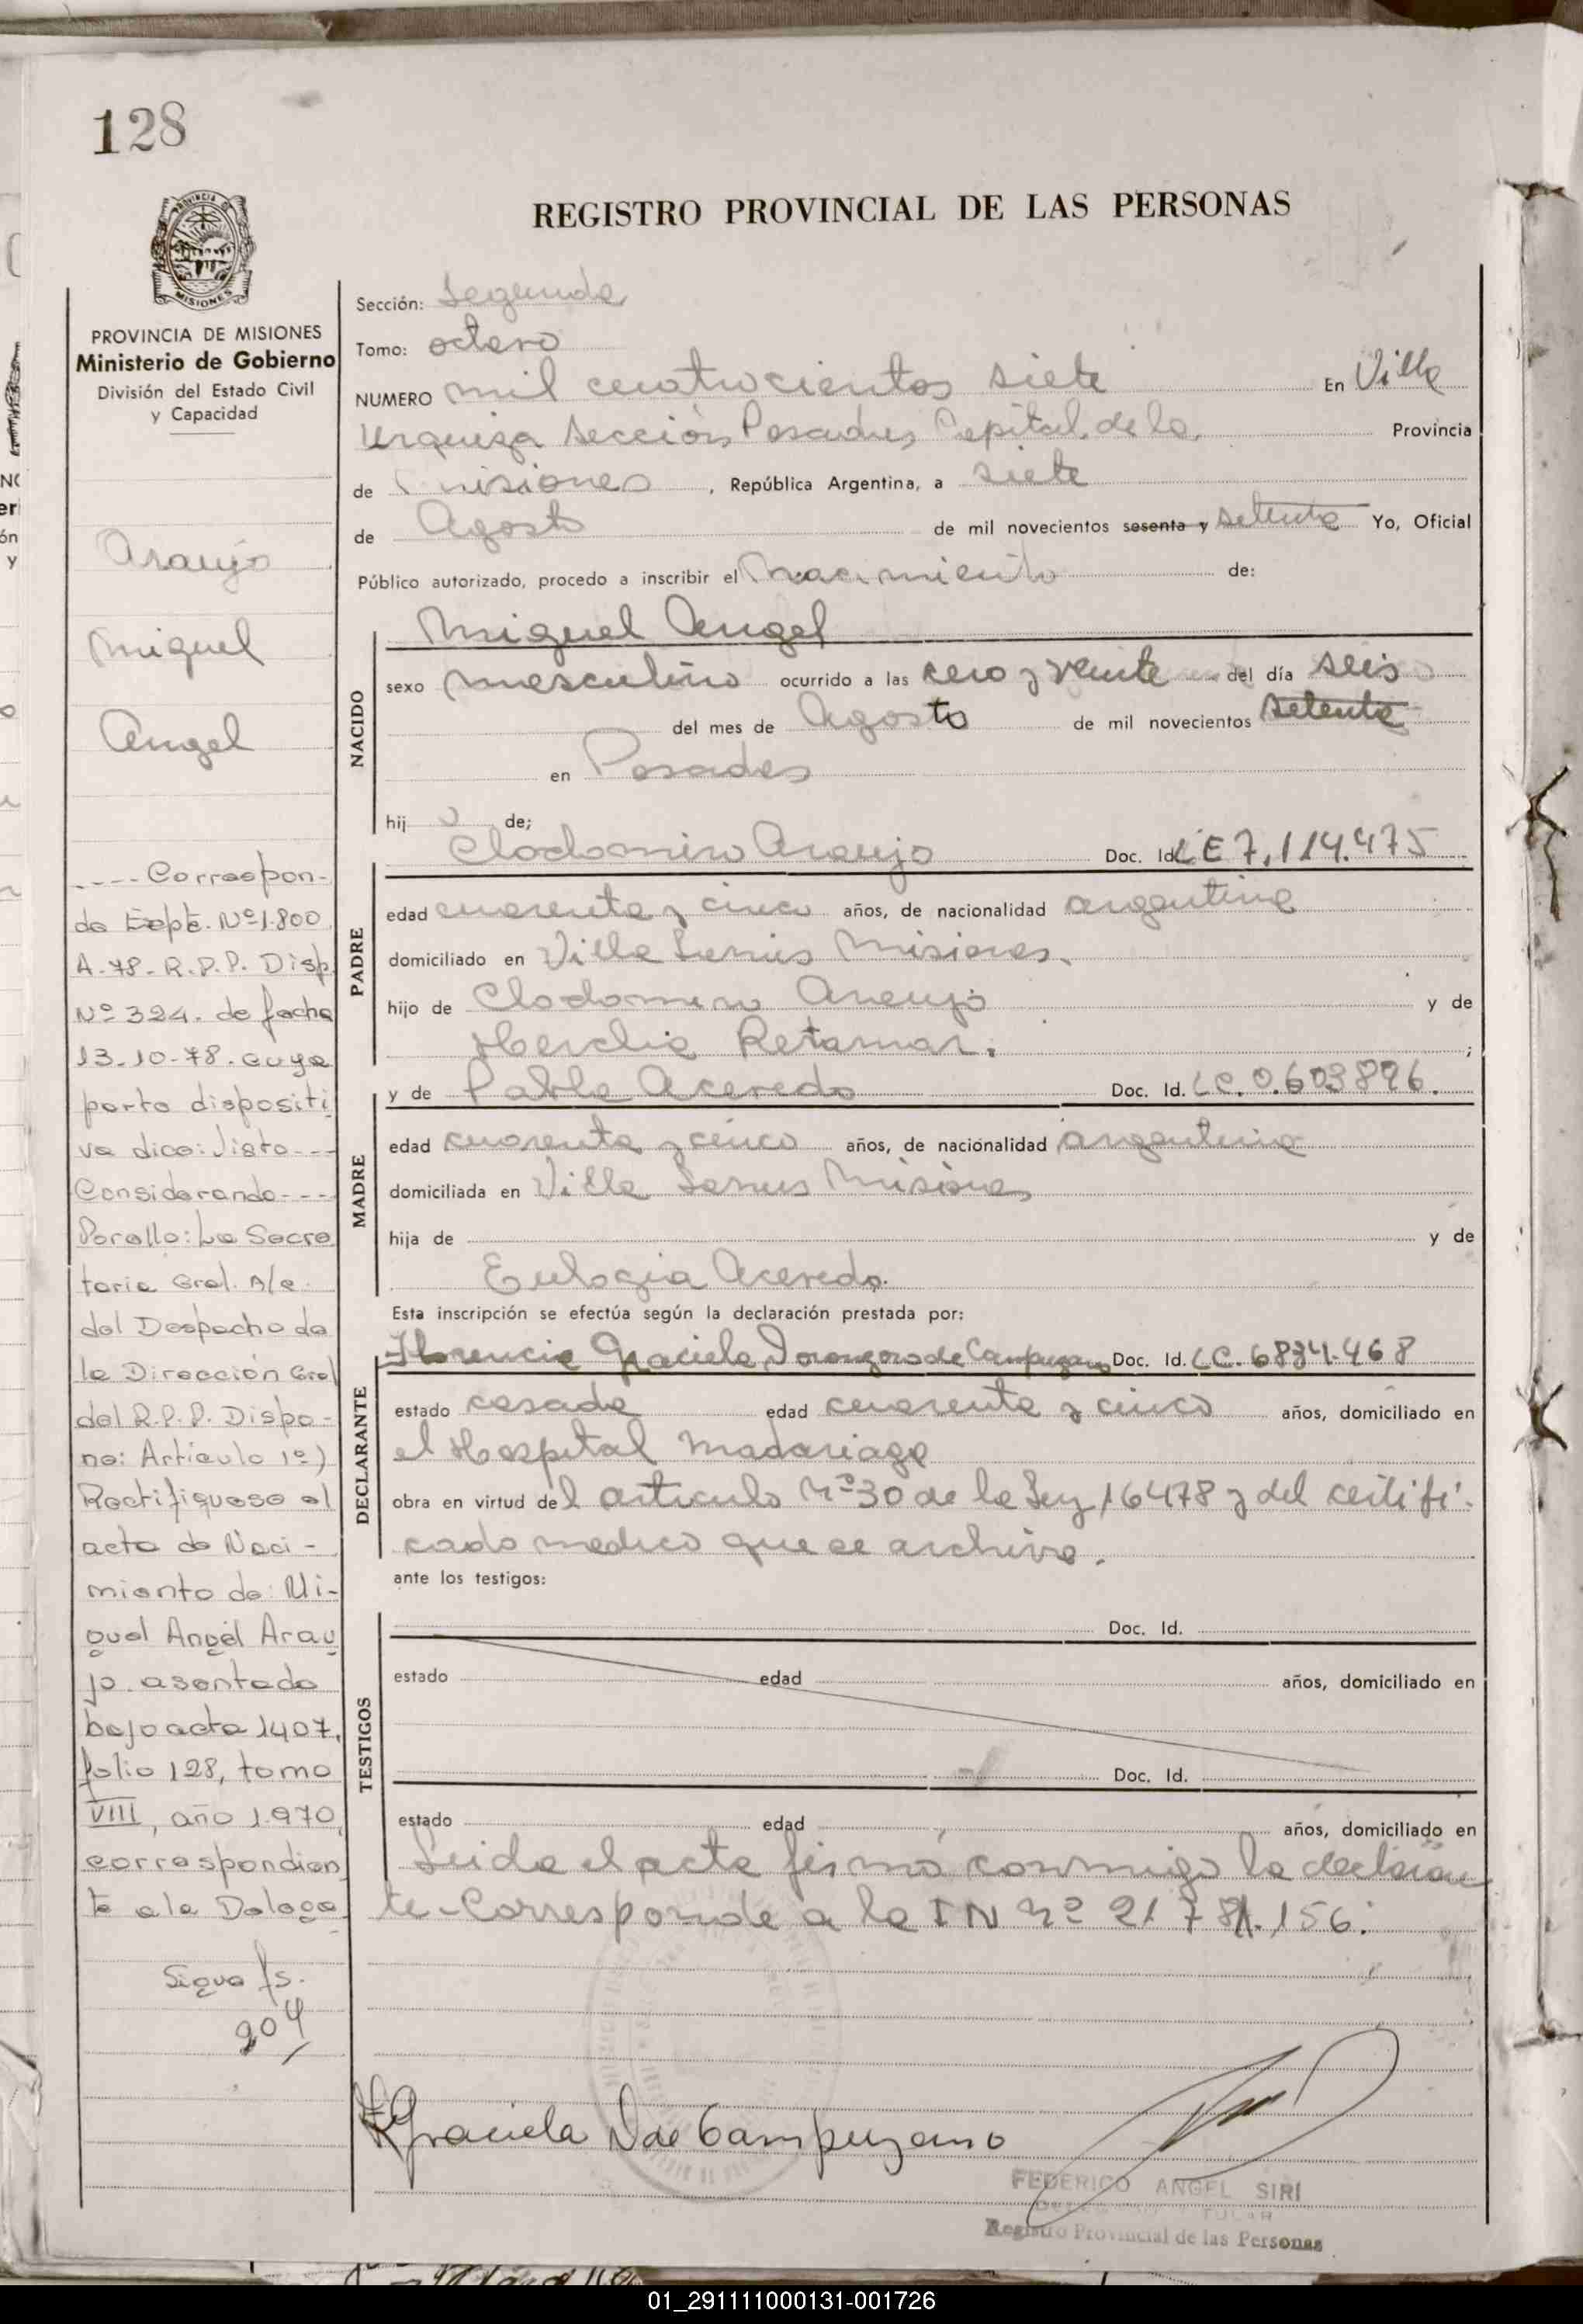 128
REGISTRO PROVINCIAL DE LAS PERSONAS
MISIONES
PROVINCIA DE MISIONES
Ministerio de Gobierno
División del Estado Civil
y Capacidad
Araujo
Miguel
Angel
---- Correspon-
de Expte. Nº 1.800
A-78-R.P.P. Disp.
Nº 324. de fecha
13-10-78. cuya
parte dispositi
va dice: Visto---
Considerando---
Por ello: La Secre
taria Gral. A/c.
del Despacho de
la Dirección Gral
del R.P.P. Dispo-
ne: Artículo 1º)
Rectifiquese el
acta de Naci-
miento de: Mi-
guel Angel Arau
jo. asentada
bajo acta 1407,
folio 128, tomo
VIII, año 1.970,
correspondien
te a la Delega
Sigue fs.
204
Sección: Segunda
Tomo: octavo
NUMERO mil cuatrocientos siete En Villa
Urquiza Sección Posadas Capital de la Provincia
de Misiones, República Argentina, a siete
de Agosto de mil novecientos sesenta y setenta Yo, Oficial
Público autorizado, procedo a inscribir el nacimiento de:
Miguel Angel
NACIDO
sexo masculino ocurrido a las cero y veinte del día seis
del mes de Agosto de mil novecientos setenta
en Posadas
hij o de;
Clodomiro Araujo Doc. Id. LE 7.114.475
PADRE
edad cuarenta y cinco años, de nacionalidad argentina
domiciliado en Villa Lanus Misiones.
hijo de Clodomiro Araujo y de
Retamar. ;
y de Pabla Acevedo Doc. Id. LC. 0.603896.
MADRE
edad cuarenta y cinco años, de nacionalidad argentina
domiciliada en Villa Lanus Misiones
hija de y de
Eulogia Acevedo.
Esta inscripción se efectúa según la declaración prestada por:
Florencia Graciela de Campuzano Doc. Id. LC. 6834.468
DECLARANTE
estado casada edad cuarenta y cinco años, domiciliado en
el Hospital Madariaga
obra en virtud del articulo Nº 30 de la Ley 16478 y del certifi-
cado medico que se archiva.
ante los testigos:
TESTIGOS
Doc. Id.
estado edad años, domiciliado en
Doc. Id.
estado edad años, domiciliado en
Leida el acta firmó conmigo la declaran
te - Corresponde a la IN Nº 21.781.156.
Graciela D de Campuzano
FEDERICO ANGEL SIRI
Registro Provincial de las Personas
01_291111000131-001726